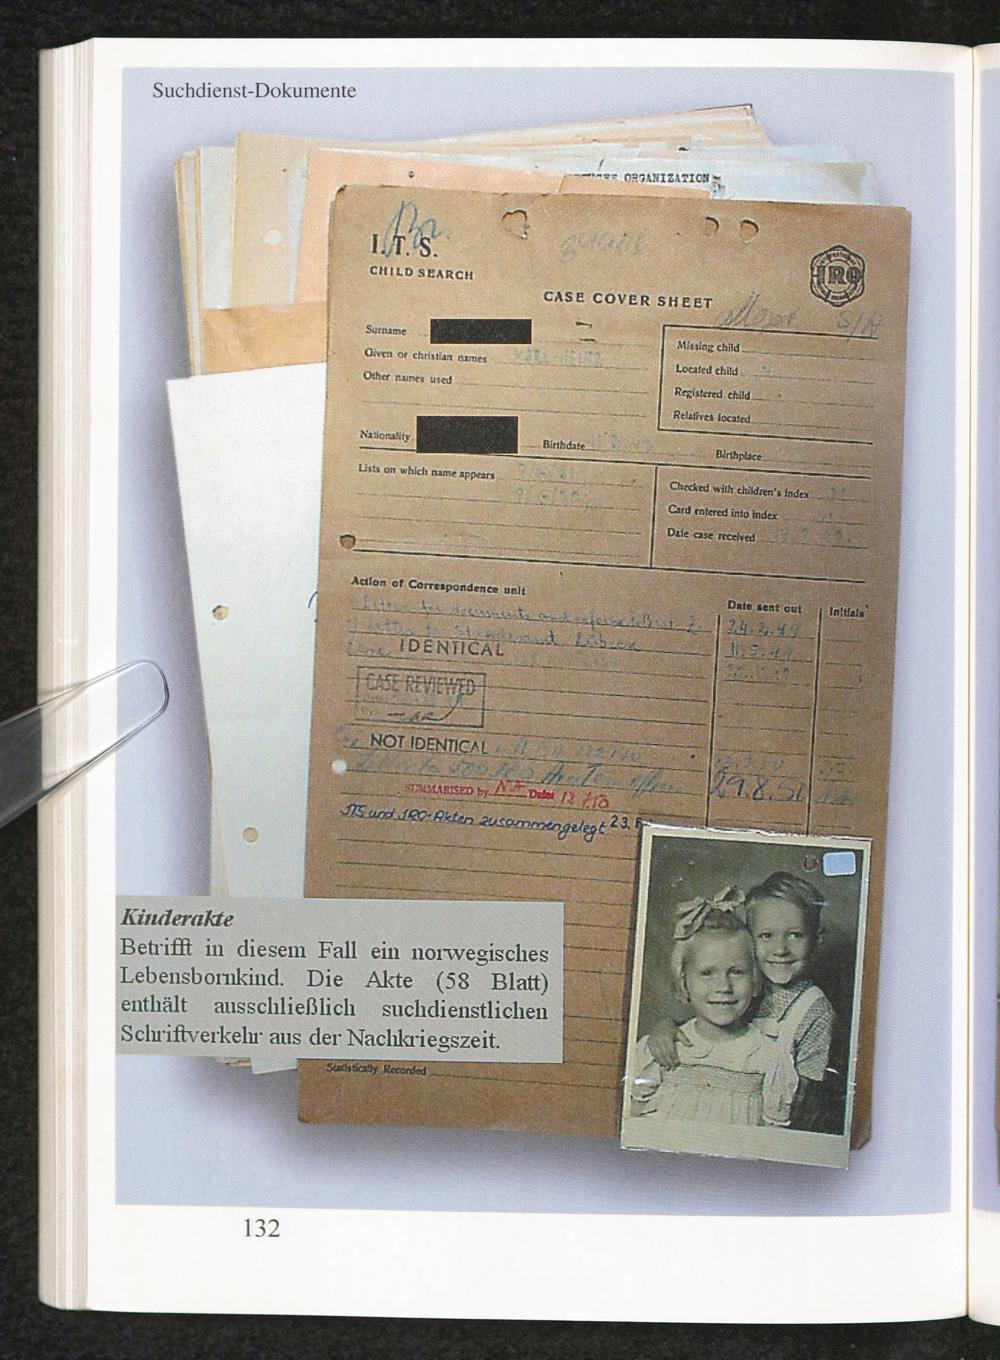 Suchdienst-Dokumente
ORGANIZATION
I.T.S.
CHILD SEARCH
IRO
CASE COVER SHEET
Surname
Given or christian names
Other names used
Missing child
Located child
Registered child
Relatives located
Nationality
Birthdate
Birthplace
Lists on which name appears
Checked with children's index
Card entered into index
Date case received
Action of Correspondence unit
Date sent out
Initials
Letter for documents and
24.2.49
Letter to Lübeck
11.5.49
IDENTICAL
CASE REVIEWED
NOT IDENTICAL
29.8.51
SUMMARISED by Date:
ITS und IRO-Akten zusammengelegt 23.
Kinderakte
Betrifft in diesem Fall ein norwegisches
Lebensbornkind. Die Akte (58 Blatt)
enthält ausschließlich suchdienstlichen
Schriftverkehr aus der Nachkriegszeit.
Statistically Recorded
132